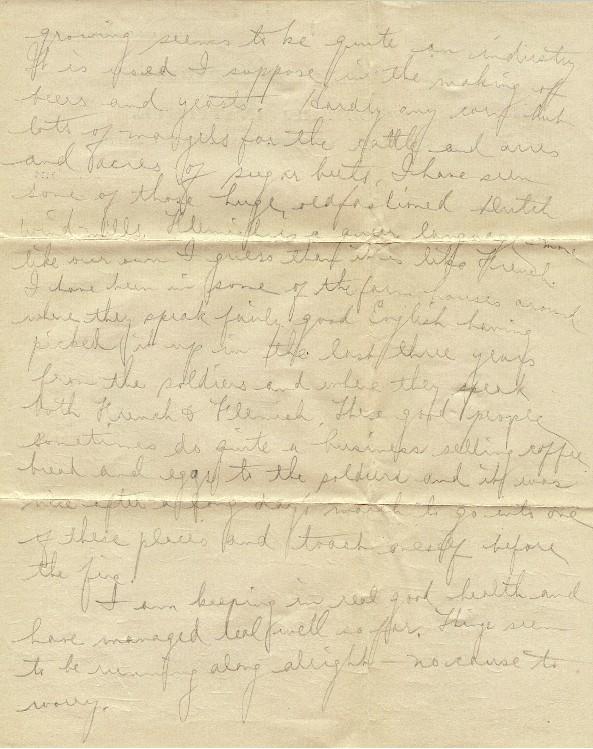 growing seems to be quite an industry
It is used I suppose in the making of
beers and yeasts. Hardly any corn but
lots of mangels for the cattle and acres
and acres of sugar beets. I have seen
some of those huge oldfashioned Dutch
windmills. Flemish is a queer language - more
like our own I guess than it is like French.
I have been in some of the farm houses around
where they speak fairly good English having
picked it up in the last three years
from the soldiers and where they speak
both French & Flemish. These good people
sometimes do quite a business selling coffee
bread and eggs to the soldiers and it was
nice after a long days march to go into one
of these places and toast oneself before
the fire.
I am keeping in real good health and
have managed real well so far. Things seem
to be running along alright - no cause to
worry.